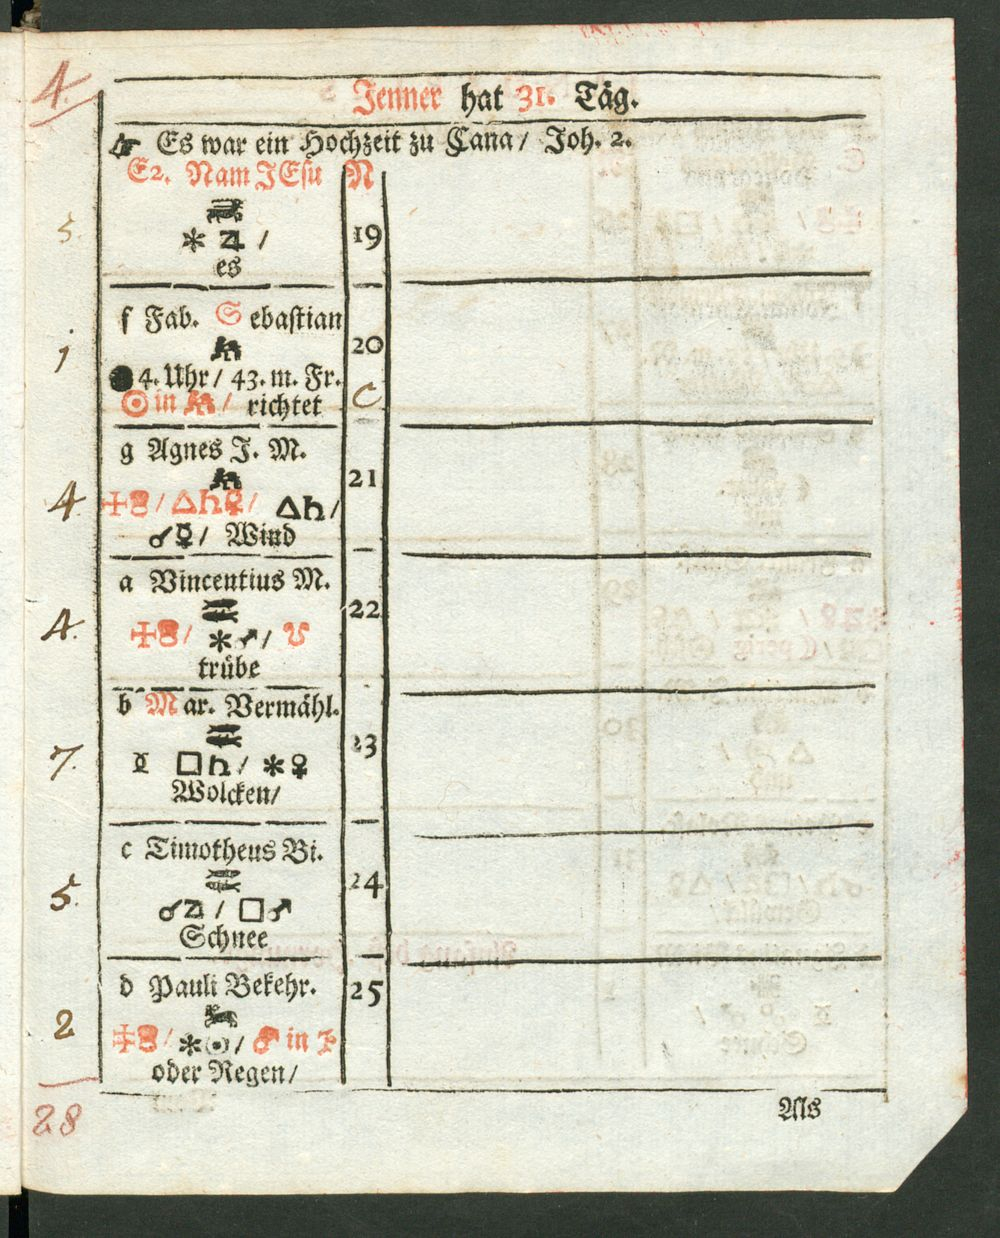 4.
Jenner hat 31. Täg.
☞ Es war ein Hochzeit zu Cana / Joh. 2.
E2. Nam JEsu N
5. ✱ ♃ / 19
es
f Fab. Sebastian
1 20
● 4. Uhr / 43. m. Fr.
☉ in ♒ / richtet C
g Agnes J. M.
21
4 △ ♄ ♀ / △ ♄ /
☌ ☿ / Wind
a Vincentius M.
22
4. ✱ ♂ / ♉
trübe
b Mar. Vermähl.
23
7. □ ♄ / ✱ ♀
Wolcken /
c Timotheus Bi.
24
5. ☌ ♃ / □ ♂
Schnee
d Pauli Bekehr. 25
2 ✱ ☉ / ♂ in
oder Regen /
28
Als